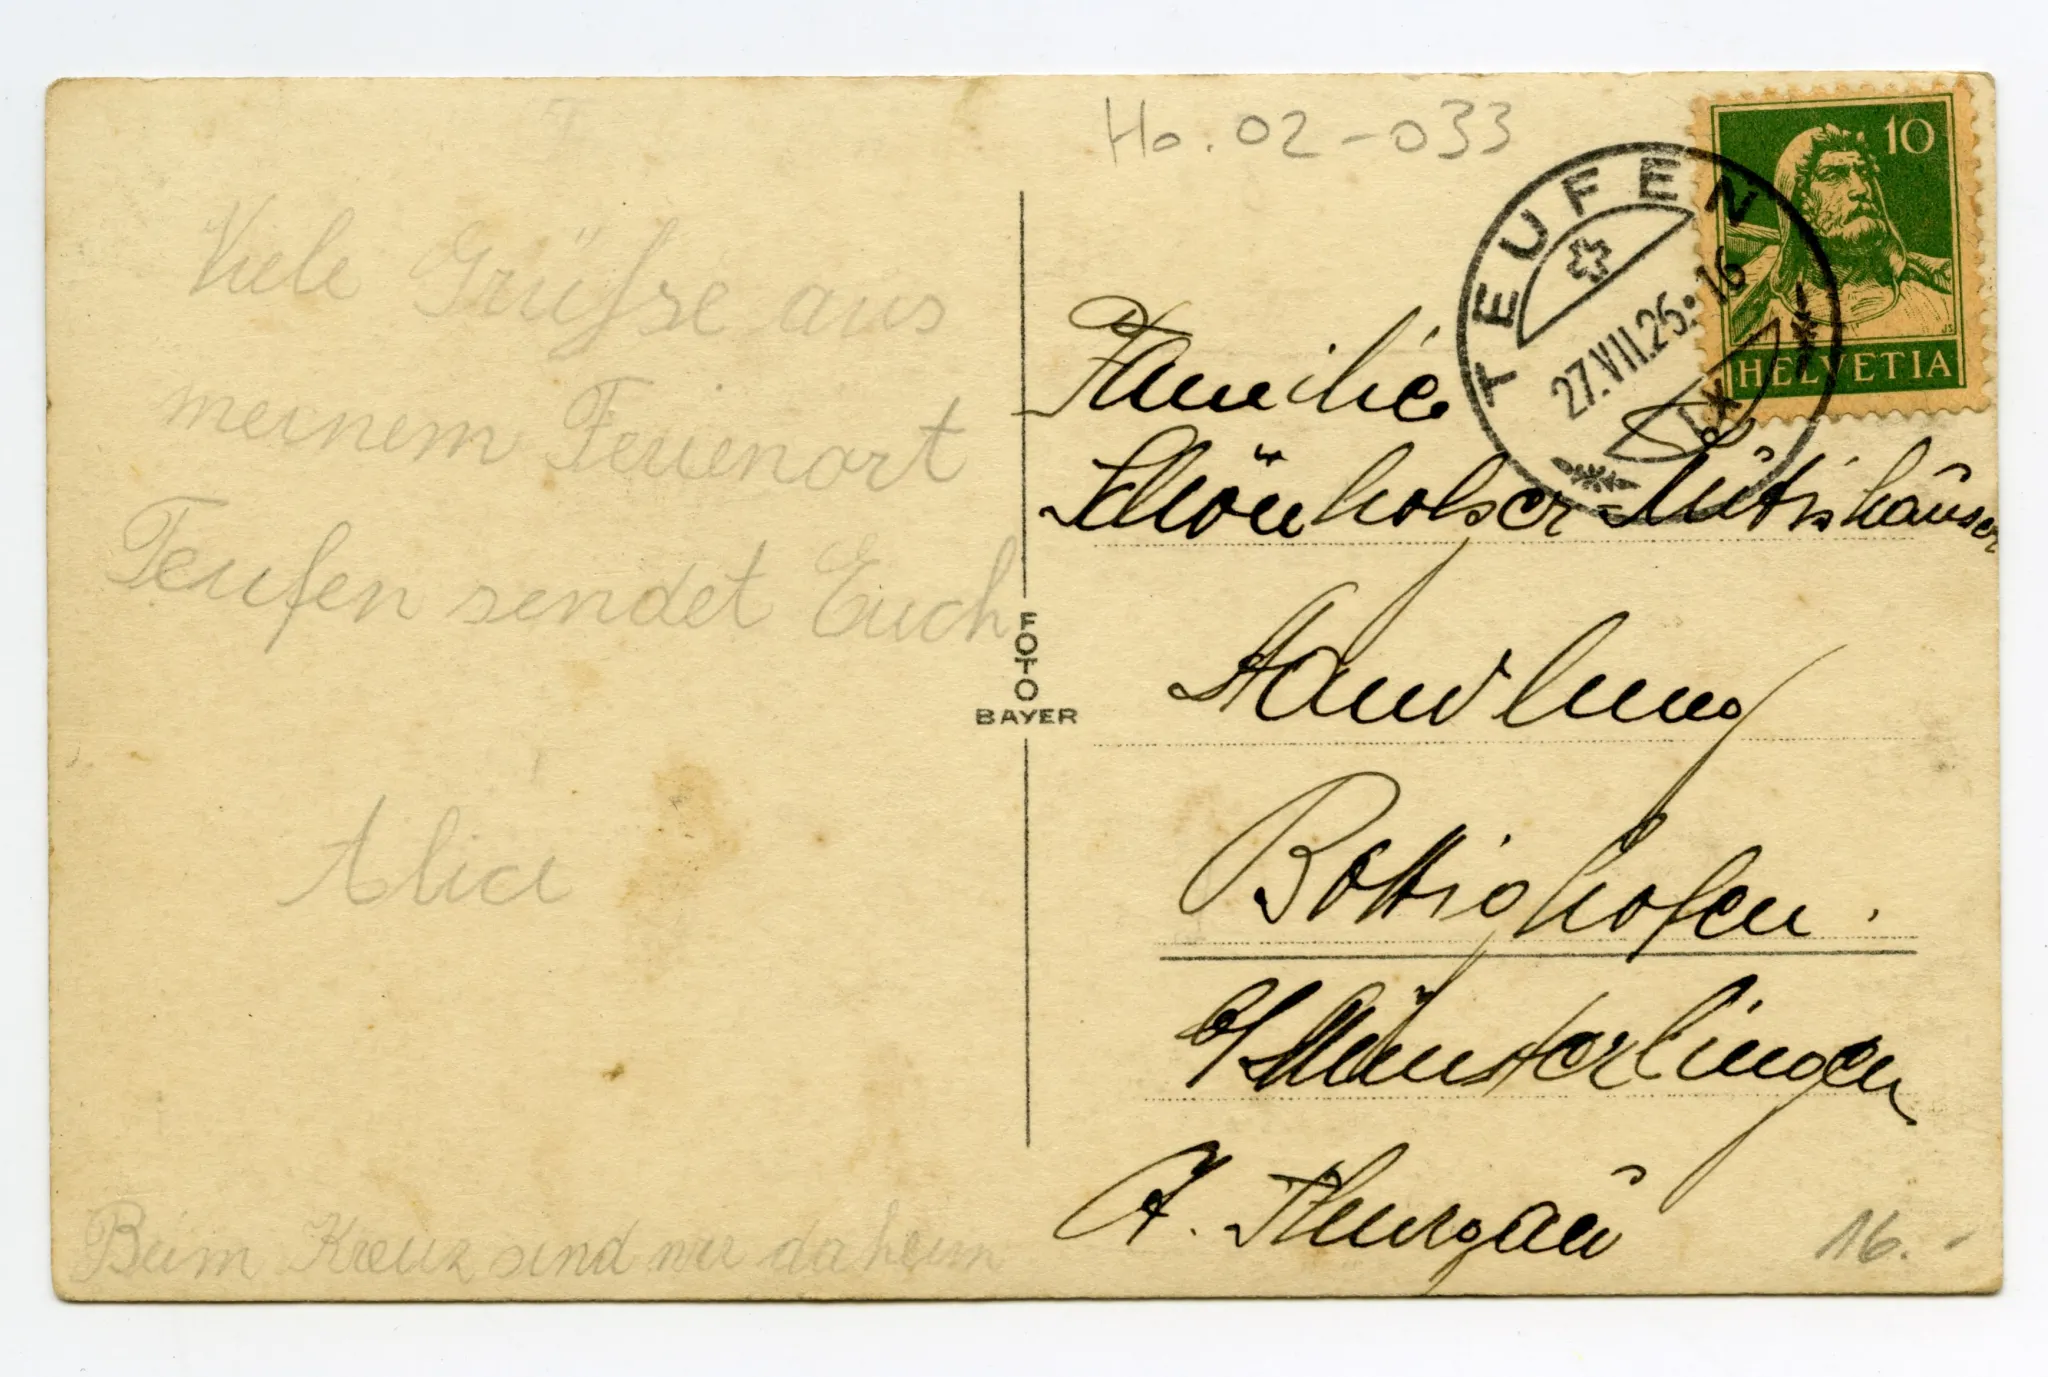 Ho. 02-033
Viele Grüsse aus
meinem Ferienort
Teufen sendet Euch
Alice
Beim Kreuz sind wir daheim
FOTO
BAYER
TEUFEN
27.VII.25.-16
10
HELVETIA
Familie
Schönholzer-Lütishäuser
Handlung
Bottighofen.
b/Münsterlingen
Kt. Thurgau
16.-